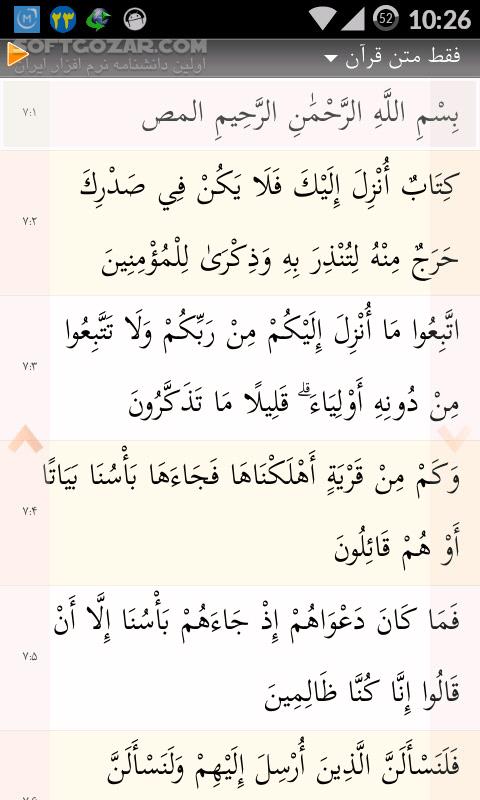 ۲۳
52
10:26
SOFTGOZAR.COM
اولین دانشنامه نرم افزار ایران
فقط متن قرآن
۷:۱
بِسْمِ اللَّهِ الرَّحْمَٰنِ الرَّحِيمِ المص
كِتَابٌ أُنْزِلَ إِلَيْكَ فَلَا يَكُنْ فِي صَدْرِكَ
۷:۲
حَرَجٌ مِنْهُ لِتُنْذِرَ بِهِ وَذِكْرَىٰ لِلْمُؤْمِنِينَ
اتَّبِعُوا مَا أُنْزِلَ إِلَيْكُمْ مِنْ رَبِّكُمْ وَلَا تَتَّبِعُوا
۷:۳
مِنْ دُونِهِ أَوْلِيَاءَ ۗ قَلِيلًا مَا تَذَكَّرُونَ
وَكَمْ مِنْ قَرْيَةٍ أَهْلَكْنَاهَا فَجَاءَهَا بَأْسُنَا بَيَاتًا
۷:۴
أَوْ هُمْ قَائِلُونَ
فَمَا كَانَ دَعْوَاهُمْ إِذْ جَاءَهُمْ بَأْسُنَا إِلَّا أَنْ
۷:۵
قَالُوا إِنَّا كُنَّا ظَالِمِينَ
فَلَنَسْأَلَنَّ الَّذِينَ أُرْسِلَ إِلَيْهِمْ وَلَنَسْأَلَنَّ